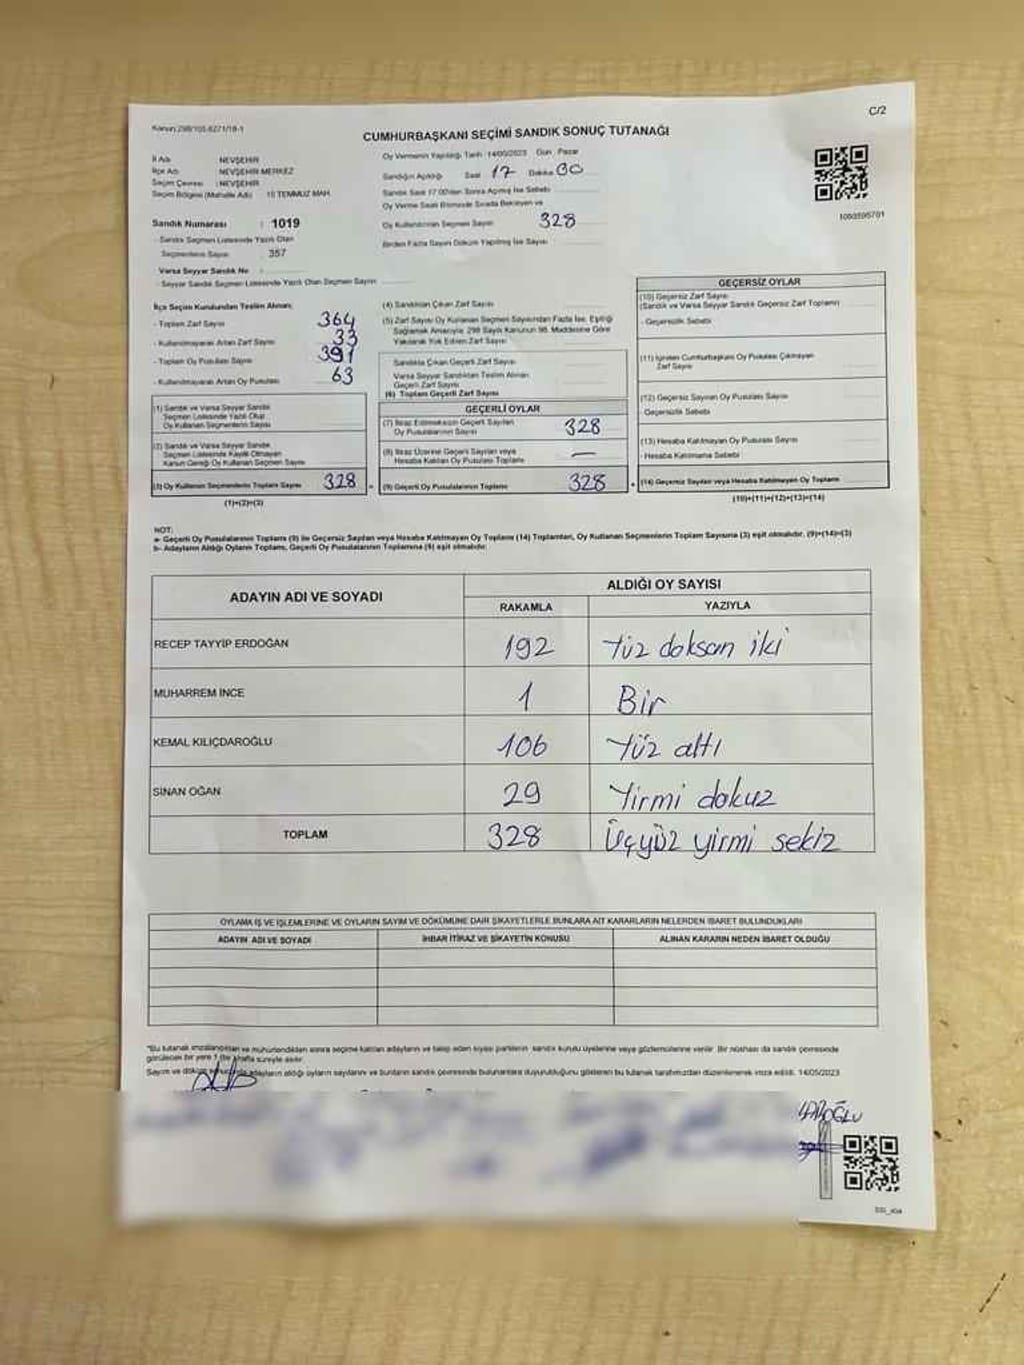 Kanun:298/105-6271/18-1
C/2
CUMHURBAŞKANI SEÇİMİ SANDIK SONUÇ TUTANAĞI
İl Adı : NEVŞEHİR
İlçe Adı : NEVŞEHİR MERKEZ
Seçim Çevresi : NEVŞEHİR
Seçim Bölgesi (Mahalle Adı) : 15 TEMMUZ MAH.
Sandık Numarası : 1019
- Sandık Seçmen Listesinde Yazılı Olan
Seçmenlerin Sayısı : 357
Varsa Seyyar Sandık No :
- Seyyar Sandık Seçmen Listesinde Yazılı Olan Seçmen Sayısı :
Oy Vermenin Yapıldığı Tarih : 14/05/2023 Gün : Pazar
Sandığın Açıldığı Saat 17 Dakika 00
Sandık Saat 17.00'den Sonra Açılmış İse Sebebi
Oy Verme Saati Bitiminde Sırada Bekleyen ve
Oy Kullandırılan Seçmen Sayısı 328
Birden Fazla Sayım Döküm Yapılmış İse Sayısı
İlçe Seçim Kurulundan Teslim Alınan:
- Toplam Zarf Sayısı 364
- Kullanılmayarak Artan Zarf Sayısı 33
- Toplam Oy Pusulası Sayısı 391
- Kullanılmayarak Artan Oy Pusulası 63
(1) Sandık ve Varsa Seyyar Sandık
Seçmen Listesinde Yazılı Olup
Oy Kullanan Seçmenlerin Sayısı
(2) Sandık ve Varsa Seyyar Sandık
Seçmen Listesinde Kayıtlı Olmayan
Kanun Gereği Oy Kullanan Seçmen Sayısı
(3) Oy Kullanan Seçmenlerin Toplam Sayısı 328
(1)+(2)=(3)
(4) Sandıktan Çıkan Zarf Sayısı
(5) Zarf Sayısı Oy Kullanan Seçmen Sayısından Fazla İse, Eşitliği
Sağlamak Amacıyla, 298 Sayılı Kanunun 98. Maddesine Göre
Yakılarak Yok Edilen Zarf Sayısı
Sandıkta Çıkan Geçerli Zarf Sayısı
Varsa Seyyar Sandıktan Teslim Alınan
Geçerli Zarf Sayısı
(6) Toplam Geçerli Zarf Sayısı
GEÇERLİ OYLAR
(7) İtiraz Edilmeksizin Geçerli Sayılan
Oy Pusulalarının Sayısı 328
(8) İtiraz Üzerine Geçerli Sayılan veya
Hesaba Katılan Oy Pusulaları Toplamı —
(9) Geçerli Oy Pusulalarının Toplamı 328
GEÇERSİZ OYLAR
(10) Geçersiz Zarf Sayısı
(Sandık ve Varsa Seyyar Sandık Geçersiz Zarf Toplamı)
- Geçersizlik Sebebi
(11) İçinden Cumhurbaşkanı Oy Pusulası Çıkmayan
Zarf Sayısı
(12) Geçersiz Sayılan Oy Pusulası Sayısı
- Geçersizlik Sebebi
(13) Hesaba Katılmayan Oy Pusulası Sayısı
- Hesaba Katılmama Sebebi
(14) Geçersiz Sayılan veya Hesaba Katılmayan Oy Toplamı
(10)+(11)+(12)+(13)=(14)
NOT:
a- Geçerli Oy Pusulalarının Toplamı (9) ile Geçersiz Sayılan veya Hesaba Katılmayan Oy Toplamı (14) Toplamları, Oy Kullanan Seçmenlerin Toplam Sayısına (3) eşit olmalıdır. (9)+(14)=(3)
b- Adayların Aldığı Oyların Toplamı, Geçerli Oy Pusulalarının Toplamına (9) eşit olmalıdır.
ADAYIN ADI VE SOYADI
ALDIĞI OY SAYISI
RAKAMLA YAZIYLA
RECEP TAYYİP ERDOĞAN 192 Yüz doksan iki
MUHARREM İNCE 1 Bir
KEMAL KILIÇDAROĞLU 106 Yüz altı
SİNAN OĞAN 29 Yirmi dokuz
TOPLAM 328 Üçyüz yirmi sekiz
OYLAMA İŞ VE İŞLEMLERİNE VE OYLARIN SAYIM VE DÖKÜMÜNE DAİR ŞİKAYETLERLE BUNLARA AİT KARARLARIN NELERDEN İBARET BULUNDUKLARI
ADAYIN ADI VE SOYADI İHBAR İTİRAZ VE ŞİKAYETİN KONUSU ALINAN KARARIN NEDEN İBARET OLDUĞU
*Bu tutanak imzalandıktan ve mühürlendikten sonra seçime katılan adayların ve talep eden siyasi partilerin sandık kurulu üyelerine veya gözlemcilerine verilir. Bir nüshası da sandık çevresinde
görülecek bir yere 1 (bir) hafta süreyle asılır.
Sayım ve döküm adayların aldığı oyların sayılarını ve bunların sandık çevresinde bulunanlara duyurulduğunu gösteren bu tutanak tarafımızdan düzenlenerek imza edildi. 14/05/2023